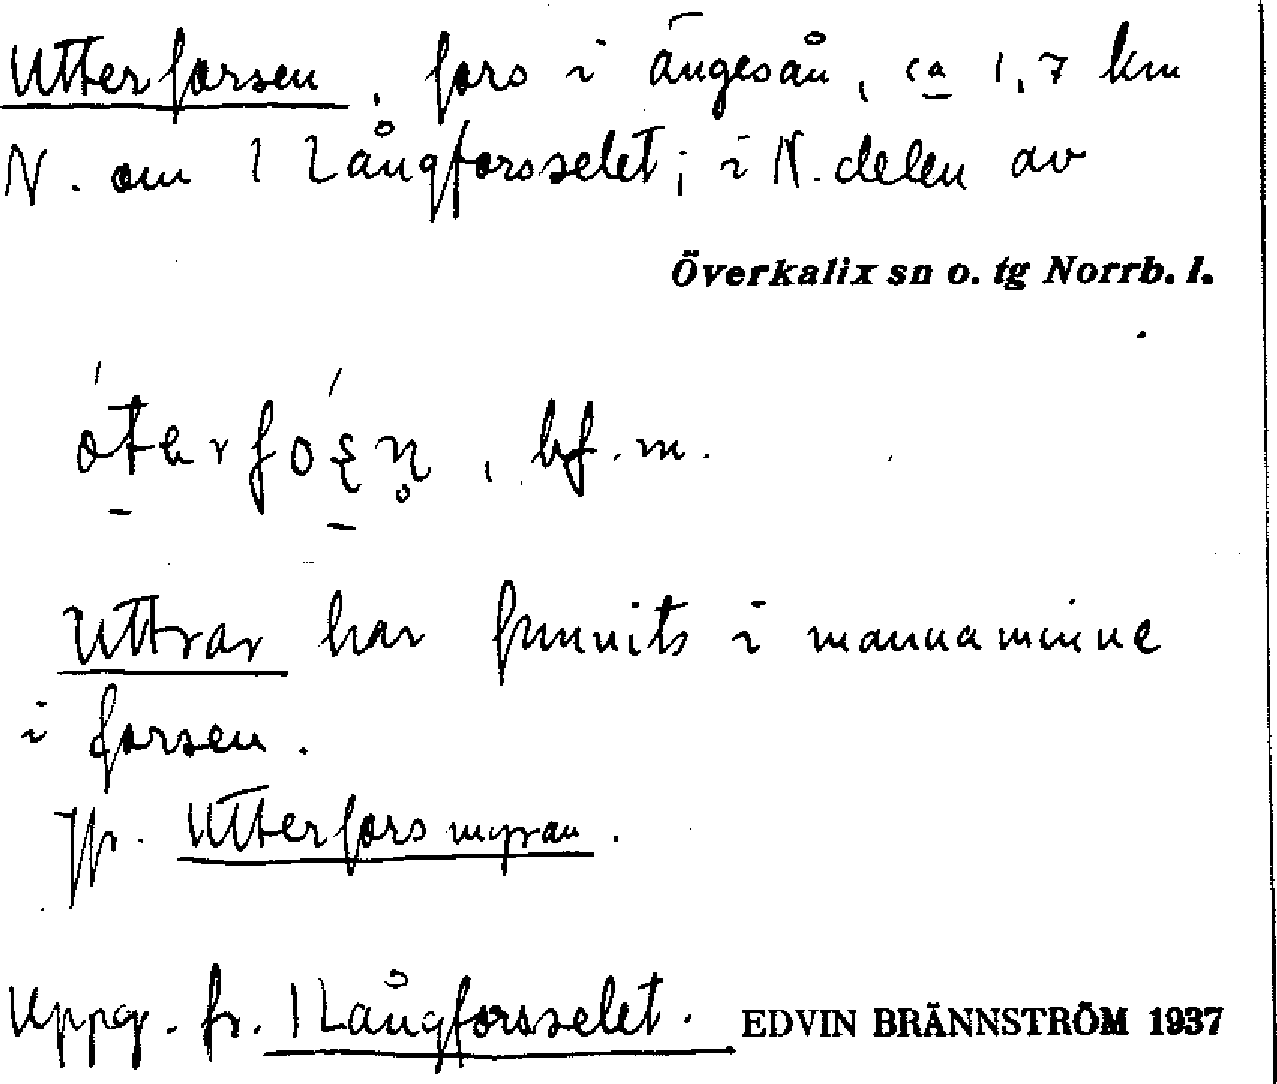 Utterforsen, fors i Ängesån, ca 1,7 km
N. om 1 Långforsselet; i N. delen av
Överkalix sn o. tg Norrb. l.
bf. m.
Uttrar har funnits i mannaminne
i forsen.
Jfr. Utterforsmyran.
Uppg. fr. 1 Långforsselet. EDVIN BRÄNNSTRÖM 1937